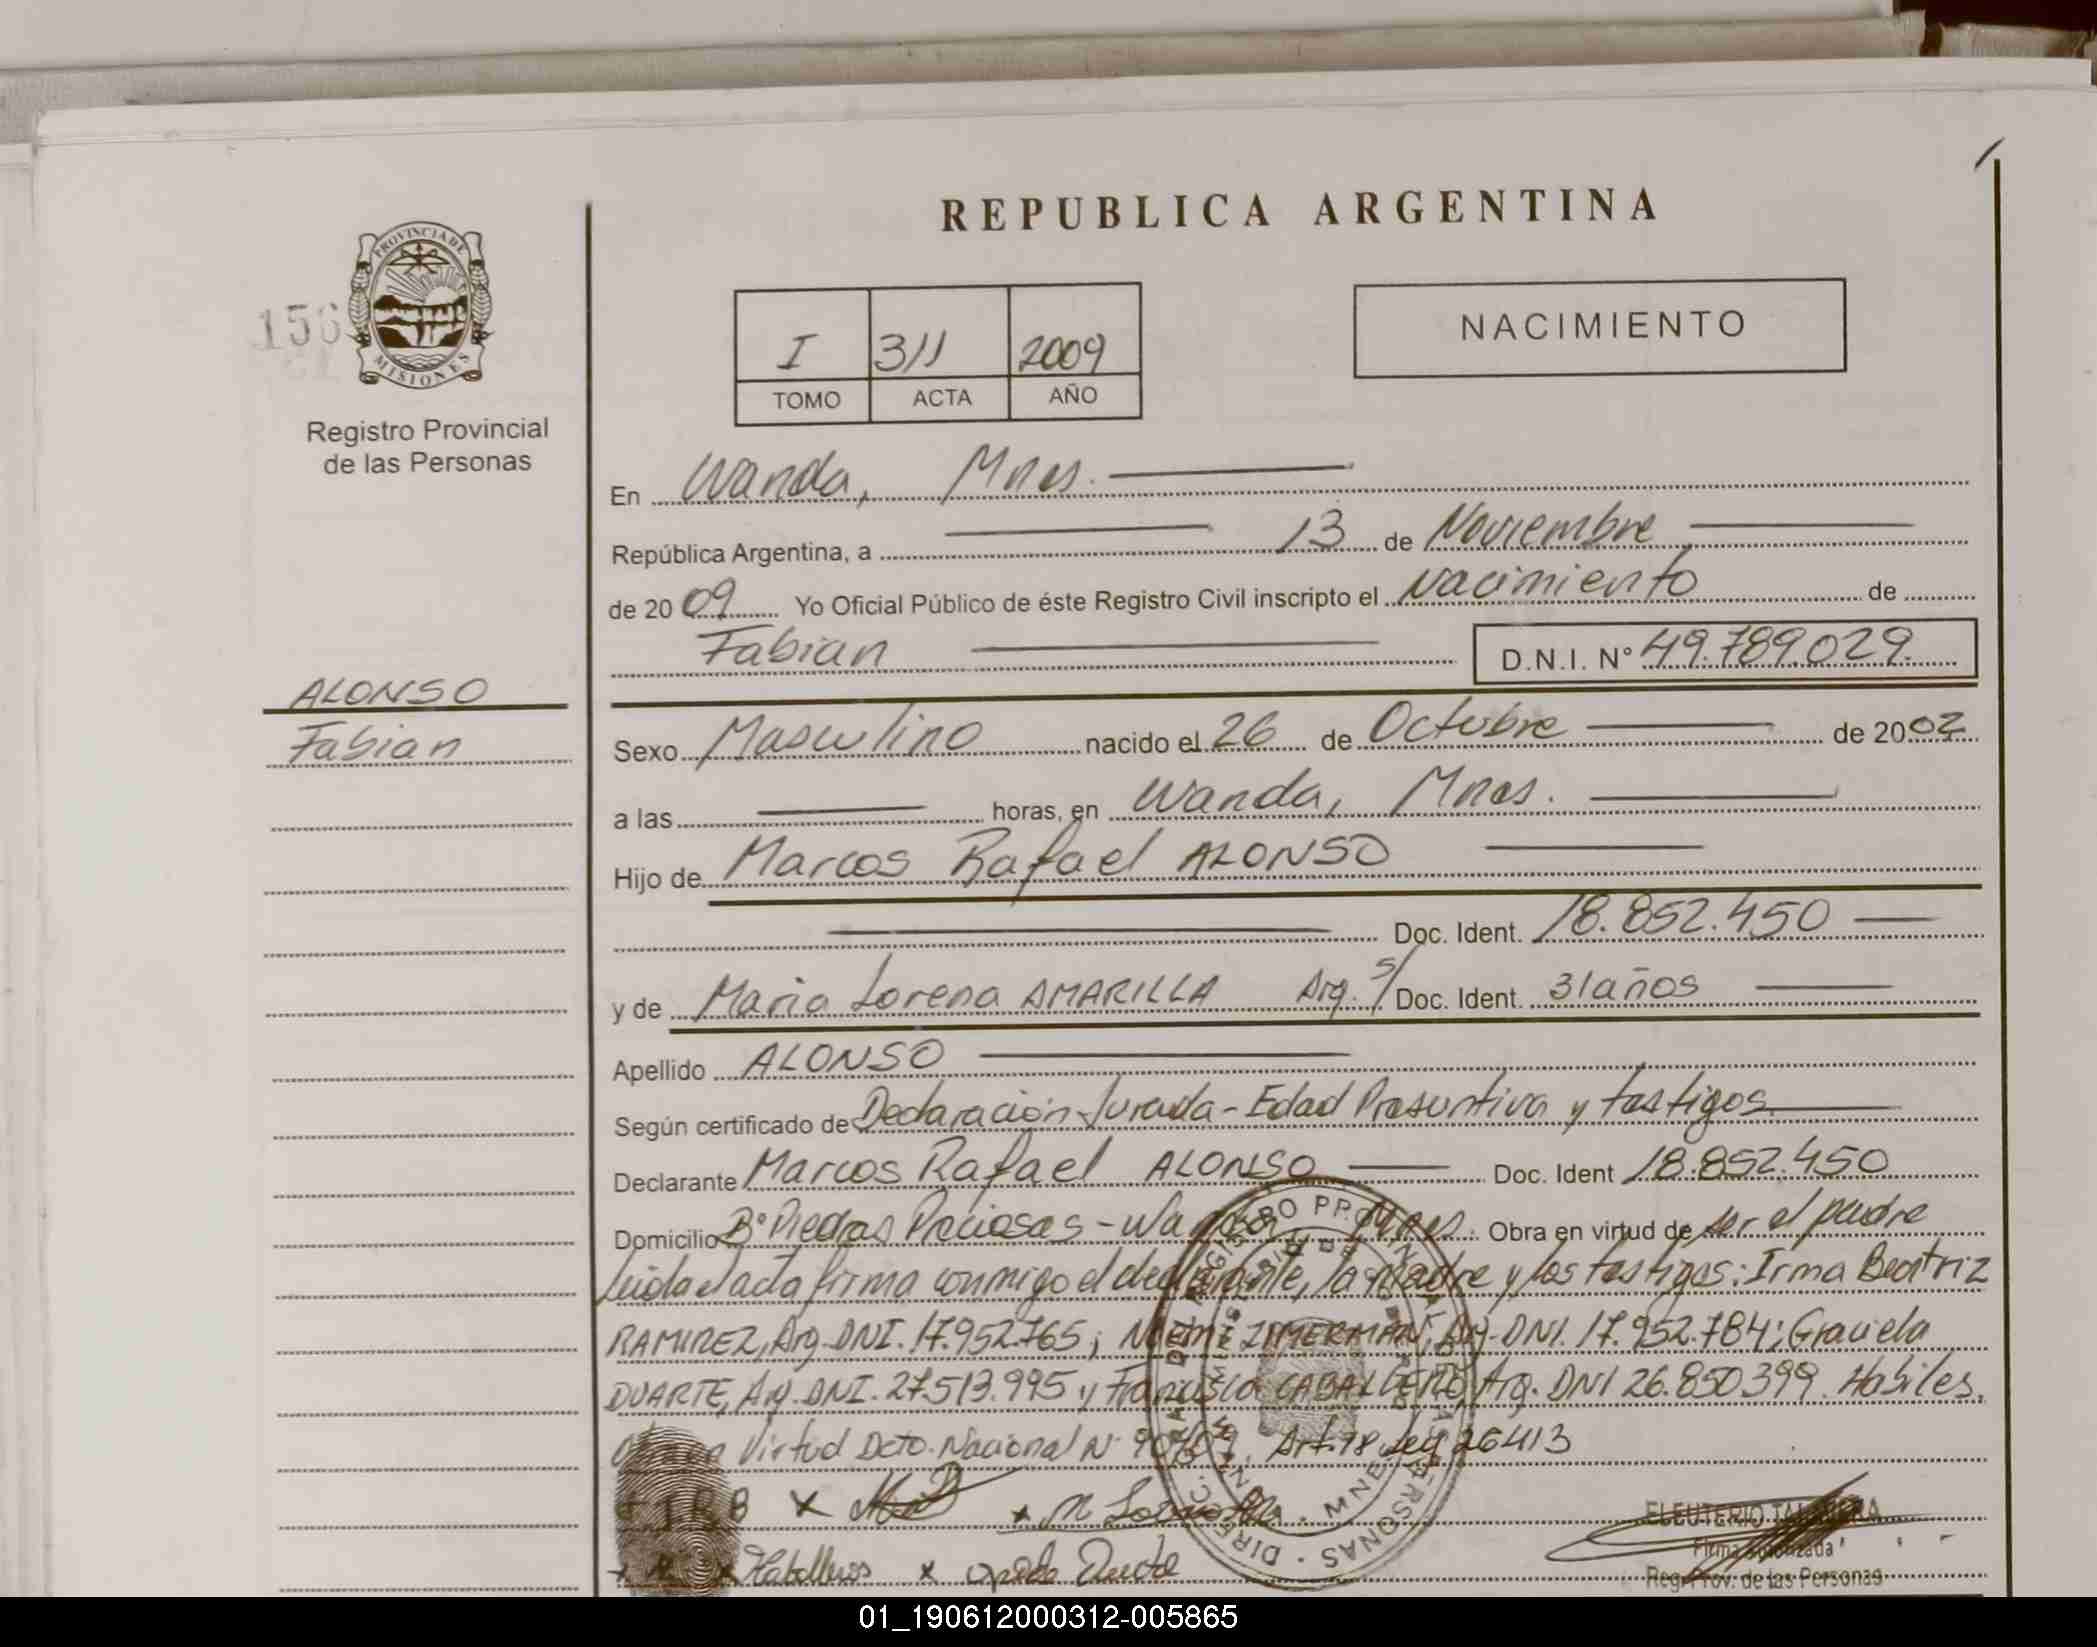 REPUBLICA ARGENTINA
PROVINCIA DE
MISIONES
156
Registro Provincial
de las Personas
I 311 2009
TOMO ACTA AÑO
NACIMIENTO
En Wanda, Mnes.
República Argentina, a 13 de Noviembre
de 2009 Yo Oficial Público de éste Registro Civil inscripto el Nacimiento de
Fabian D.N.I. N° 49.789.029.
ALONSO
Fabian
Sexo Masculino nacido el 26 de Octubre de 2002
a las horas, en Wanda, Mnes.
Hijo de Marcos Rafael ALONSO
Doc. Ident. 18.852.450
y de Maria Lorena AMARILLA Arg. s/ Doc. Ident. 31 años
Apellido ALONSO
Según certificado de Declaración Jurada - Edad Presuntiva y testigos
Declarante Marcos Rafael ALONSO Doc. Ident 18.852.450
Domicilio B° Piedras Preciosas - Wanda Mnes. Obra en virtud de ser el padre
Leida el acta firma conmigo el declarante, la madre y los testigos: Irma Beatriz
RAMIREZ, Arg. DNI. 17.952.765; Noemi ZIMERMAN, Arg. DNI. 17.952.784; Graciela
DUARTE, Arg. DNI. 27.513.995 y Francisca CABALLERO, Arg. DNI 26.850399. Habiles.
Virtud Dcto. Nacional N° Art. 18 Ley 26413
ELEUTERIO TALAVERA
Firma Autorizada
Reg. Prov. de las Personas
01_190612000312-005865